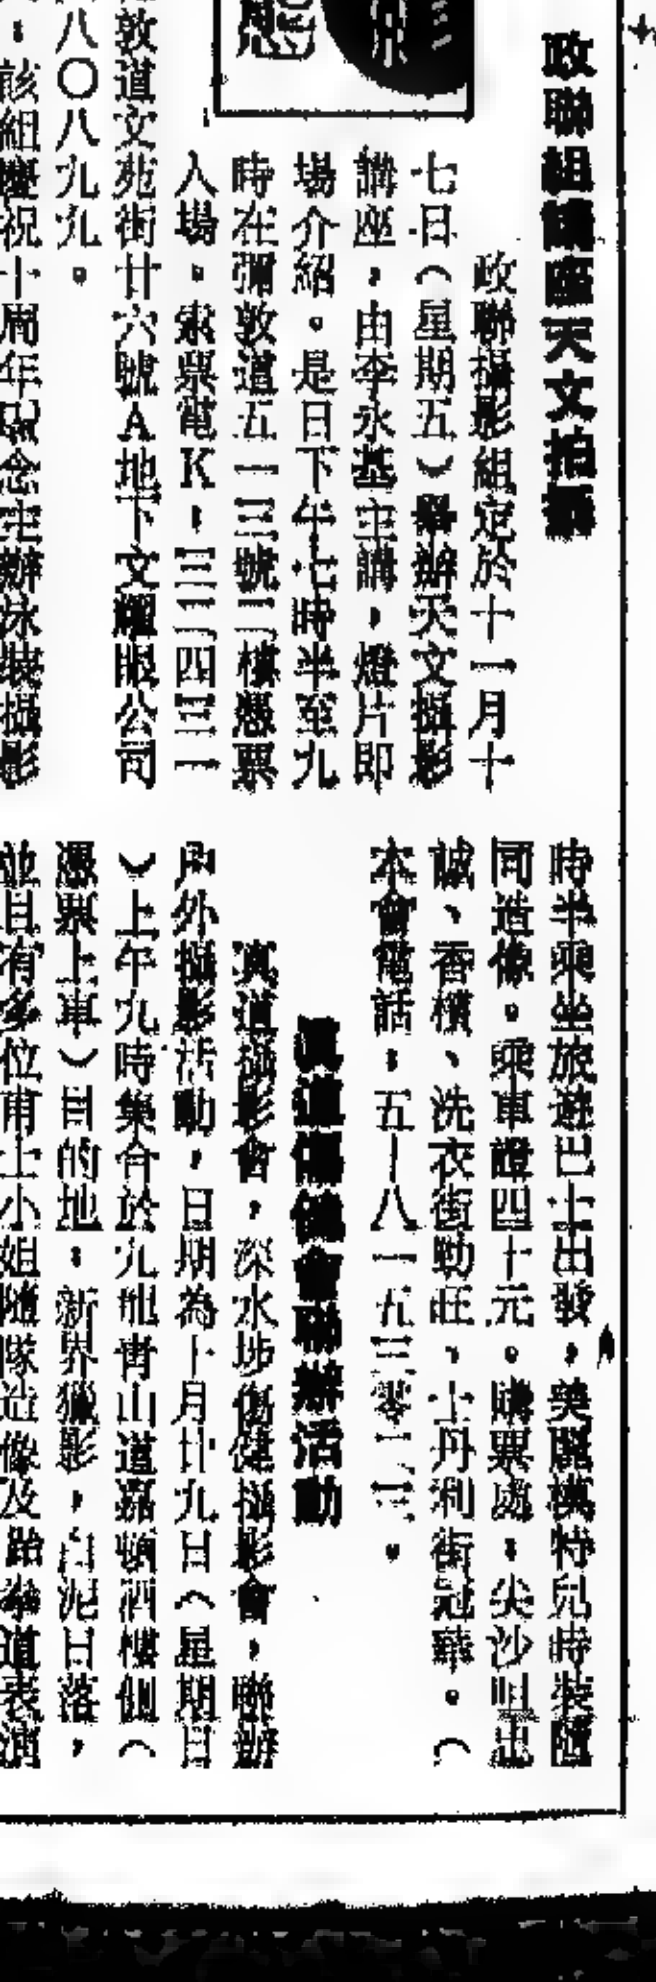 政聯組講座天文拍攝
政聯攝影組定於十一月十
七日（星期五）舉辦天文攝影
講座，由李永基主講，燈片即
場介紹。是日下午七時半至九
時在彌敦道五一三號二樓憑票
入場。索票電K，三
四三一
敦道文苑街廿六號A地下文耀眼公司
八〇八九九。
該組慶祝十周年紀念主辦泳裝攝影
時半乘坐旅遊巴士出發，美麗模特兒時裝隨
同造像。乘車證四十元。購票處：尖沙咀忠
誠、香檳、洗衣街勁旺、士丹利街冠華。（
本會電話：五—八一五三零二三。
真道傷健會聯辦活動
真道攝影會，深水埗傷健攝影會，聯辦
戶外攝影活動，日期為十月廿九日（星期日
）上午九時集合於九龍青山道嘉頓酒樓側（
憑票上車）目的地：新界獵影，白泥日落，
並且有多位甫士小姐隨隊造像及跆拳道表演